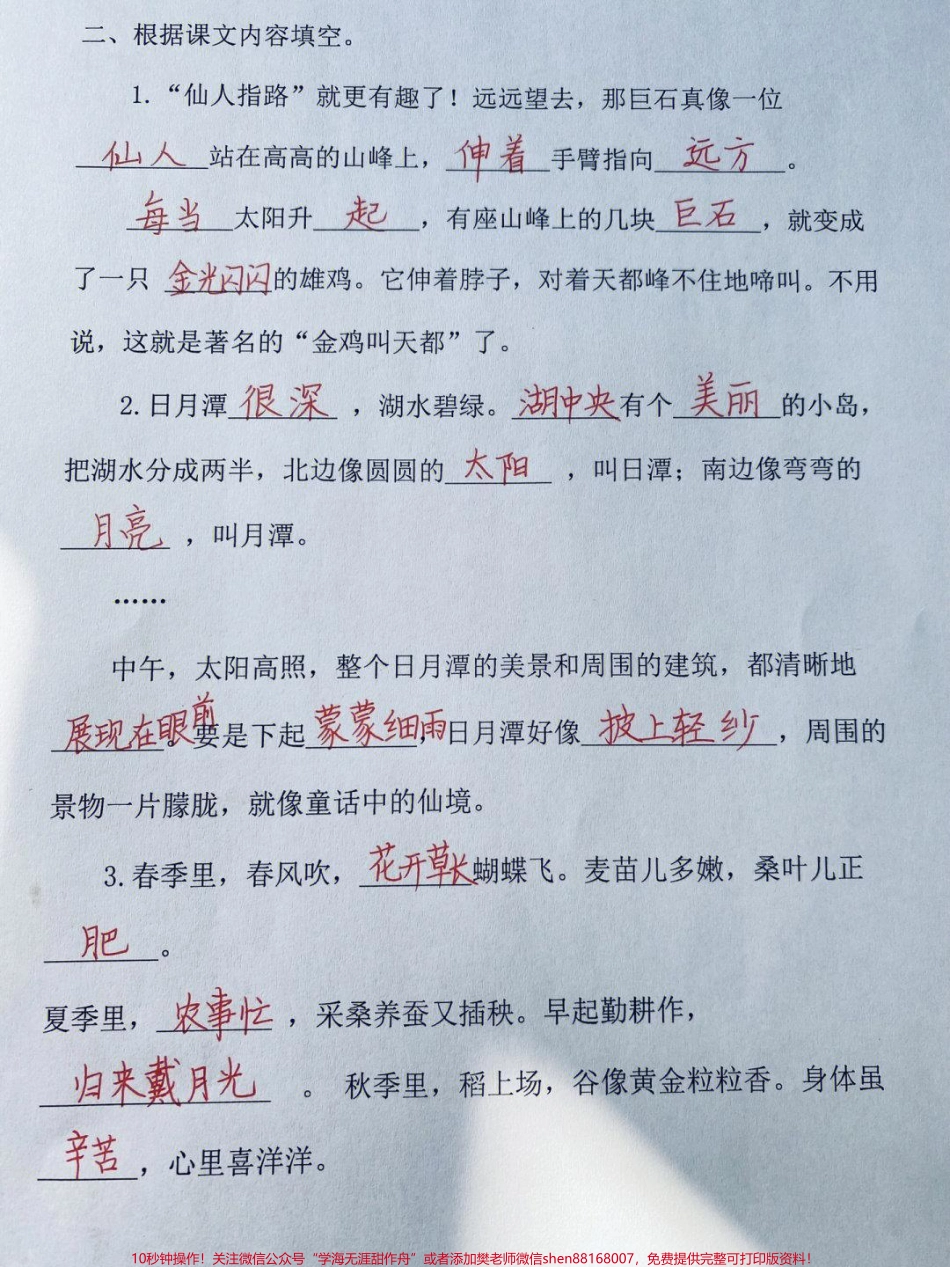 二、根据课文内容填空。
1.“仙人指路”就更有趣了！远远望去，那巨石真像一位
仙人站在高高的山峰上，伸着手臂指向远方。
每当太阳升起，有座山峰上的几块巨石，就变成
了一只金光闪闪的雄鸡。它伸着脖子，对着天都峰不住地啼叫。不用
说，这就是著名的“金鸡叫天都”了。
2.日月潭很深，湖水碧绿。湖中央有个美丽的小岛，
把湖水分成两半，北边像圆圆的太阳，叫日潭；南边像弯弯的
月亮，叫月潭。
……
中午，太阳高照，整个日月潭的美景和周围的建筑，都清晰地
展现在眼前。要是下起蒙蒙细雨，日月潭好像披上轻纱，周围的
景物一片朦胧，就像童话中的仙境。
3.春季里，春风吹，花开草长蝴蝶飞。麦苗儿多嫩，桑叶儿正
肥。
夏季里，农事忙，采桑养蚕又插秧。早起勤耕作，
归来戴月光。秋季里，稻上场，谷像黄金粒粒香。身体虽
辛苦，心里喜洋洋。
10秒钟操作！关注微信公众号“学海无涯甜作舟”或者添加樊老师微信shen88168007，免费提供完整可打印版资料！